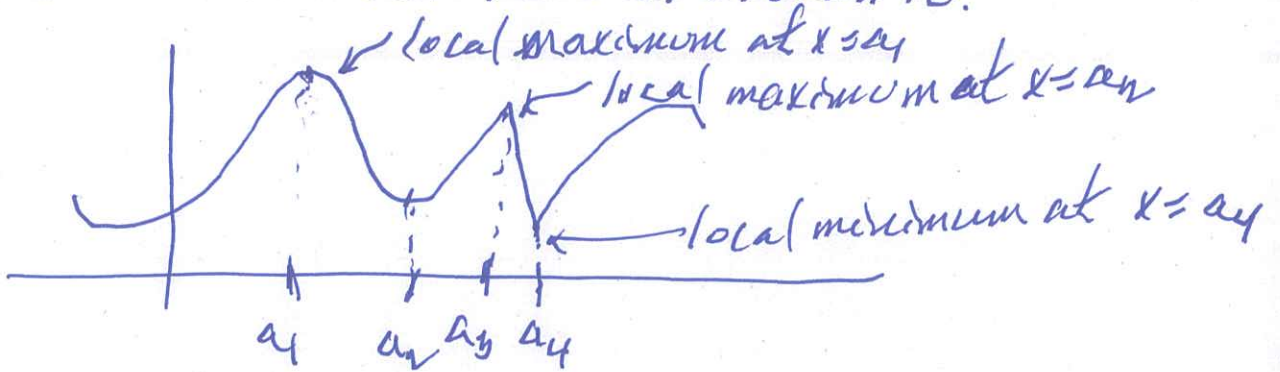 local maximum at x=a₁
local maximum at x=a₂
local minimum at x=a₄
a₁ a₂ a₃ a₄